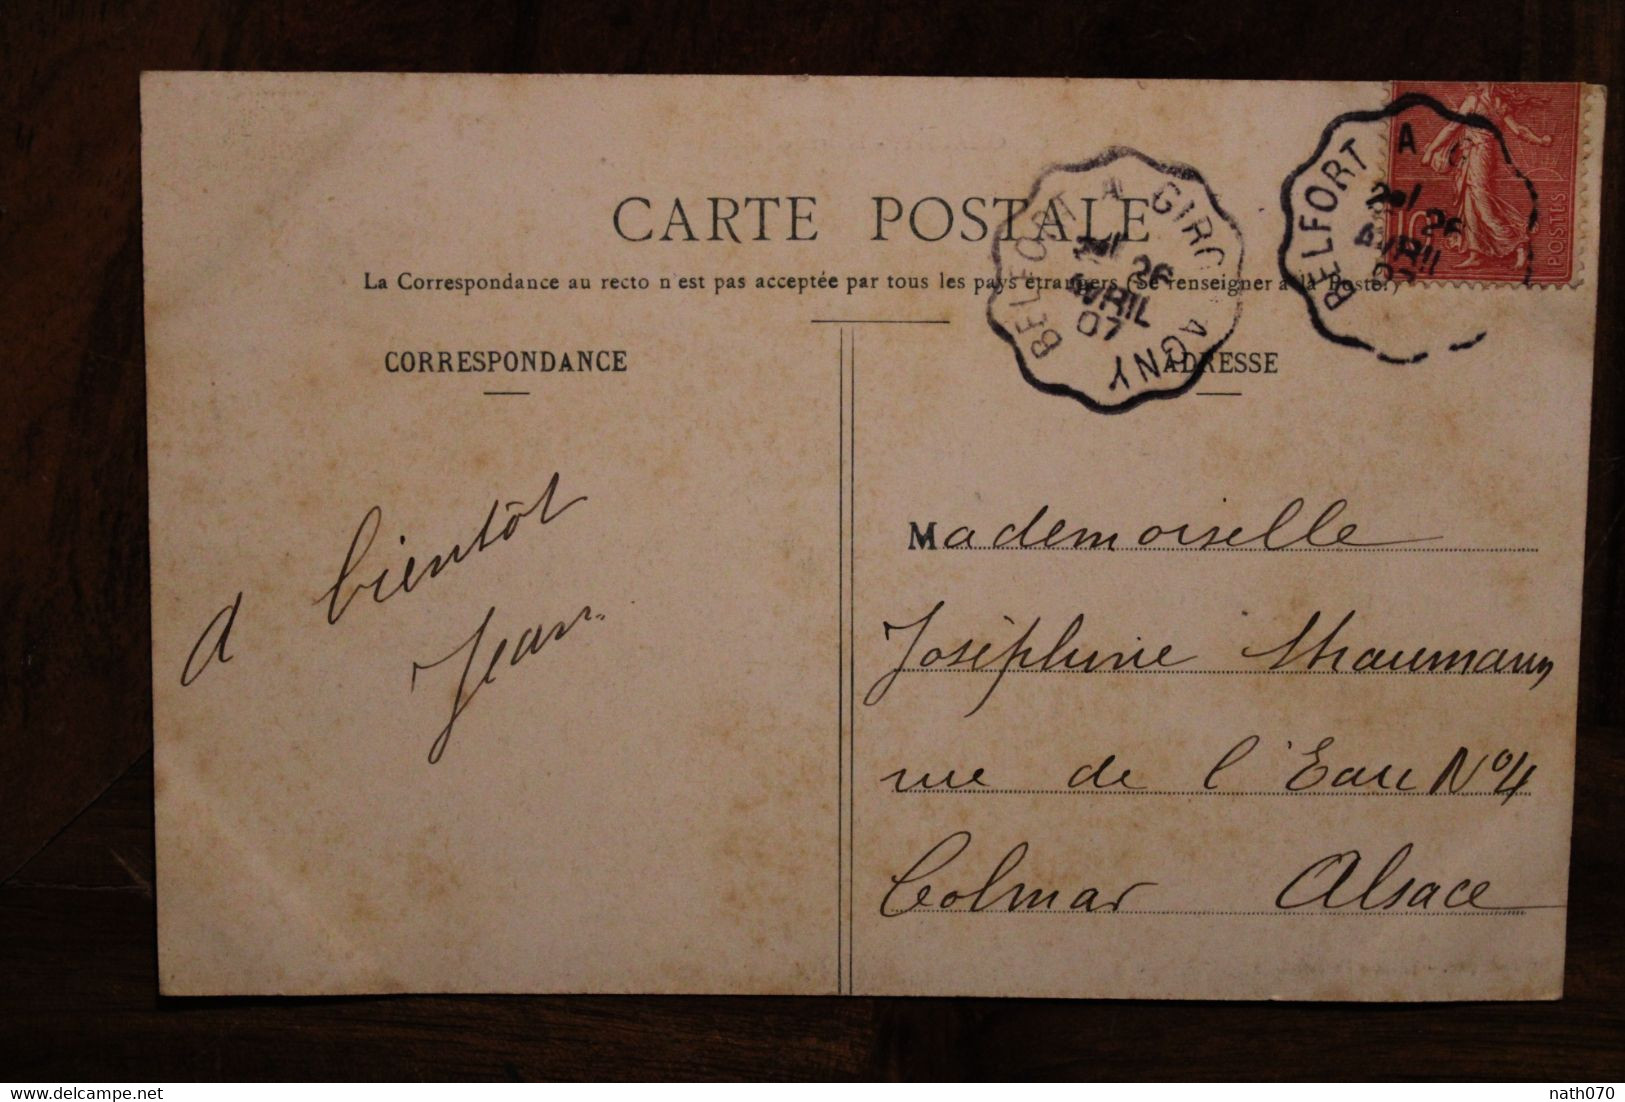 CARTE POSTALE
La Correspondance au recto n'est pas acceptée par tous les pays étrangers (Se renseigner à la Poste.)
CORRESPONDANCE
ADRESSE
A bientôt
Jean
Mademoiselle
Joséphine
rue de l'Eau N° 4
Colmar Alsace
BELFORT A GIROMAGNY
26
AVRIL
07
BELFORT A G
26
AVRIL
10
POSTES
nath070